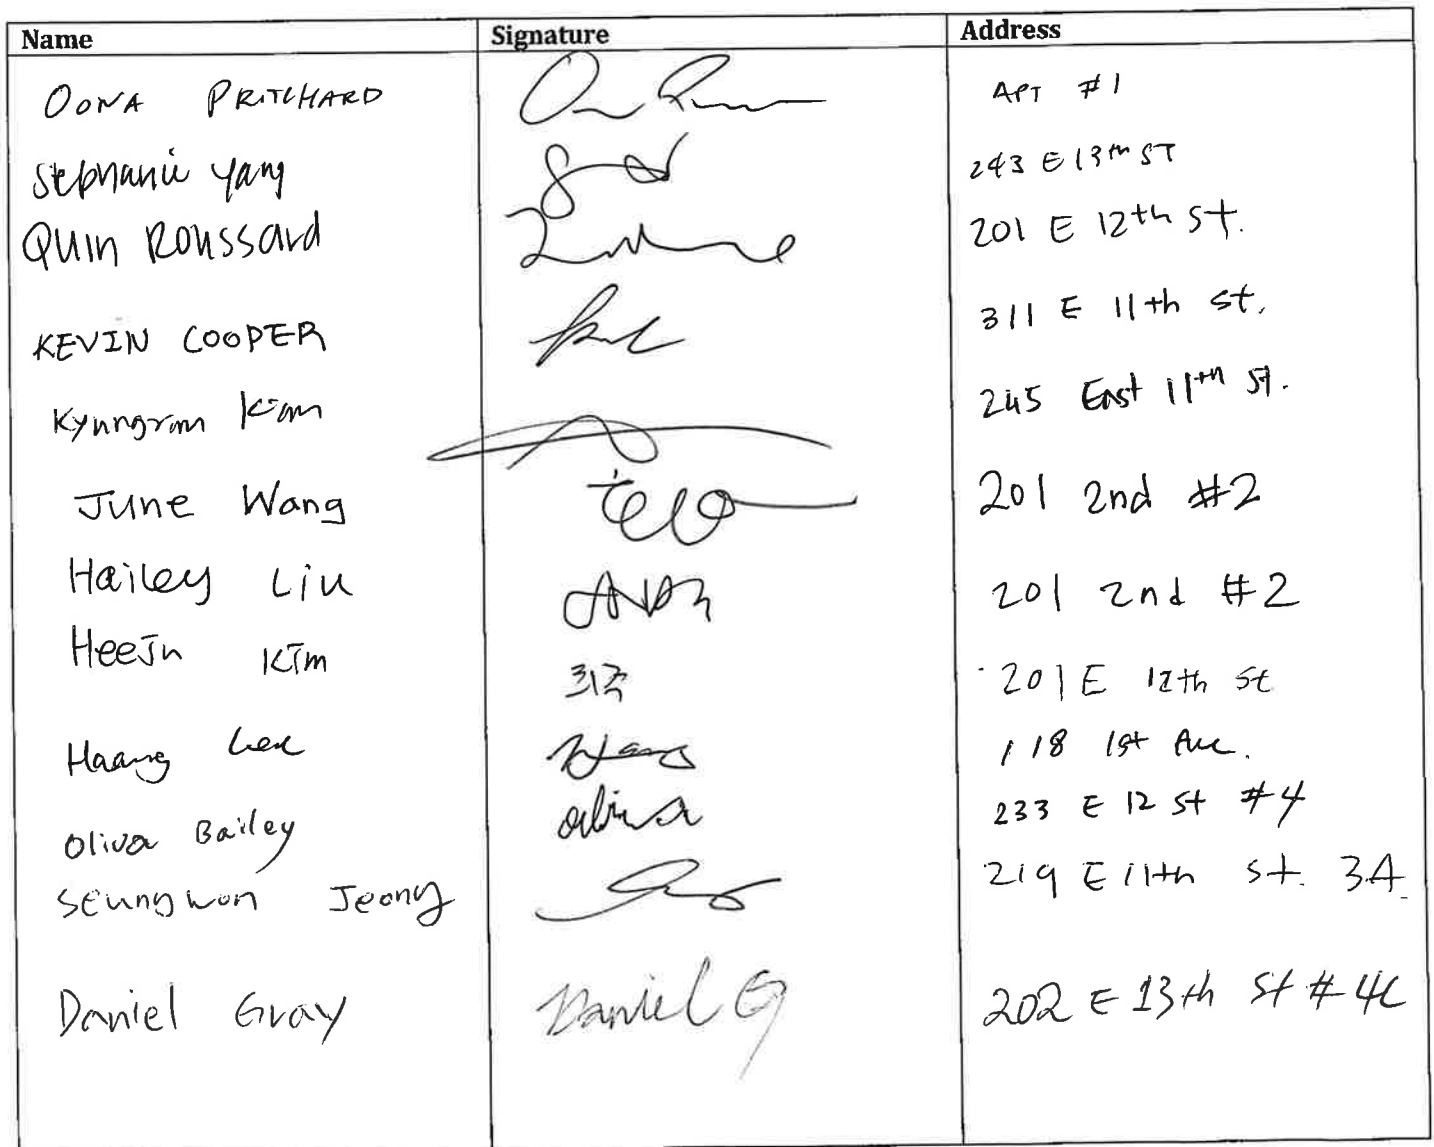 Name Signature Address
OONA PRITCHARD APT #1
Stephanie Yang 243 E 13th ST
Quin Roussard 201 E 12th St.
KEVIN COOPER 311 E 11th St.
Kyungran Kim 245 East 11th St.
June Wang 201 2nd #2
Hailey Liu 201 2nd #2
Heejn Kim 201 E 12th St
Haang Lee 118 1st Ave.
Oliva Bailey olivia 233 E 12 St #4
Seungwon Jeong 219 E 11th St. 3A
Daniel Gray Daniel G 202 E 13th St #4C